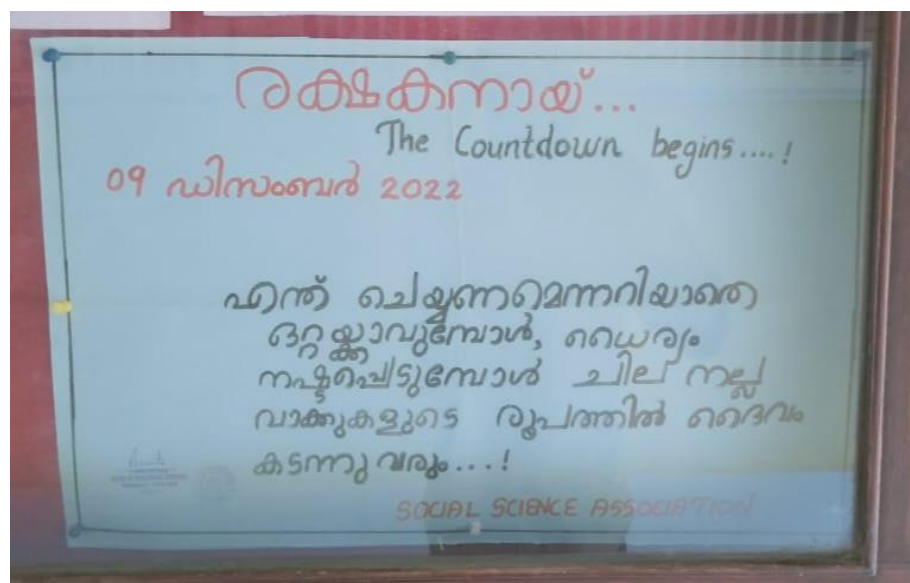 രക്ഷകനായ്...
The Countdown begins....!
09 ഡിസംബർ 2022
എന്ത് ചെയ്യണമെന്നറിയാതെ
ഒറ്റയ്ക്കാവുമ്പോൾ, ധൈര്യം
നഷ്ടപ്പെടുമ്പോൾ ചില നല്ല
വാക്കുകളുടെ രൂപത്തിൽ ദൈവം
കടന്നു വരും...!
SOCIAL SCIENCE ASSOCIATION